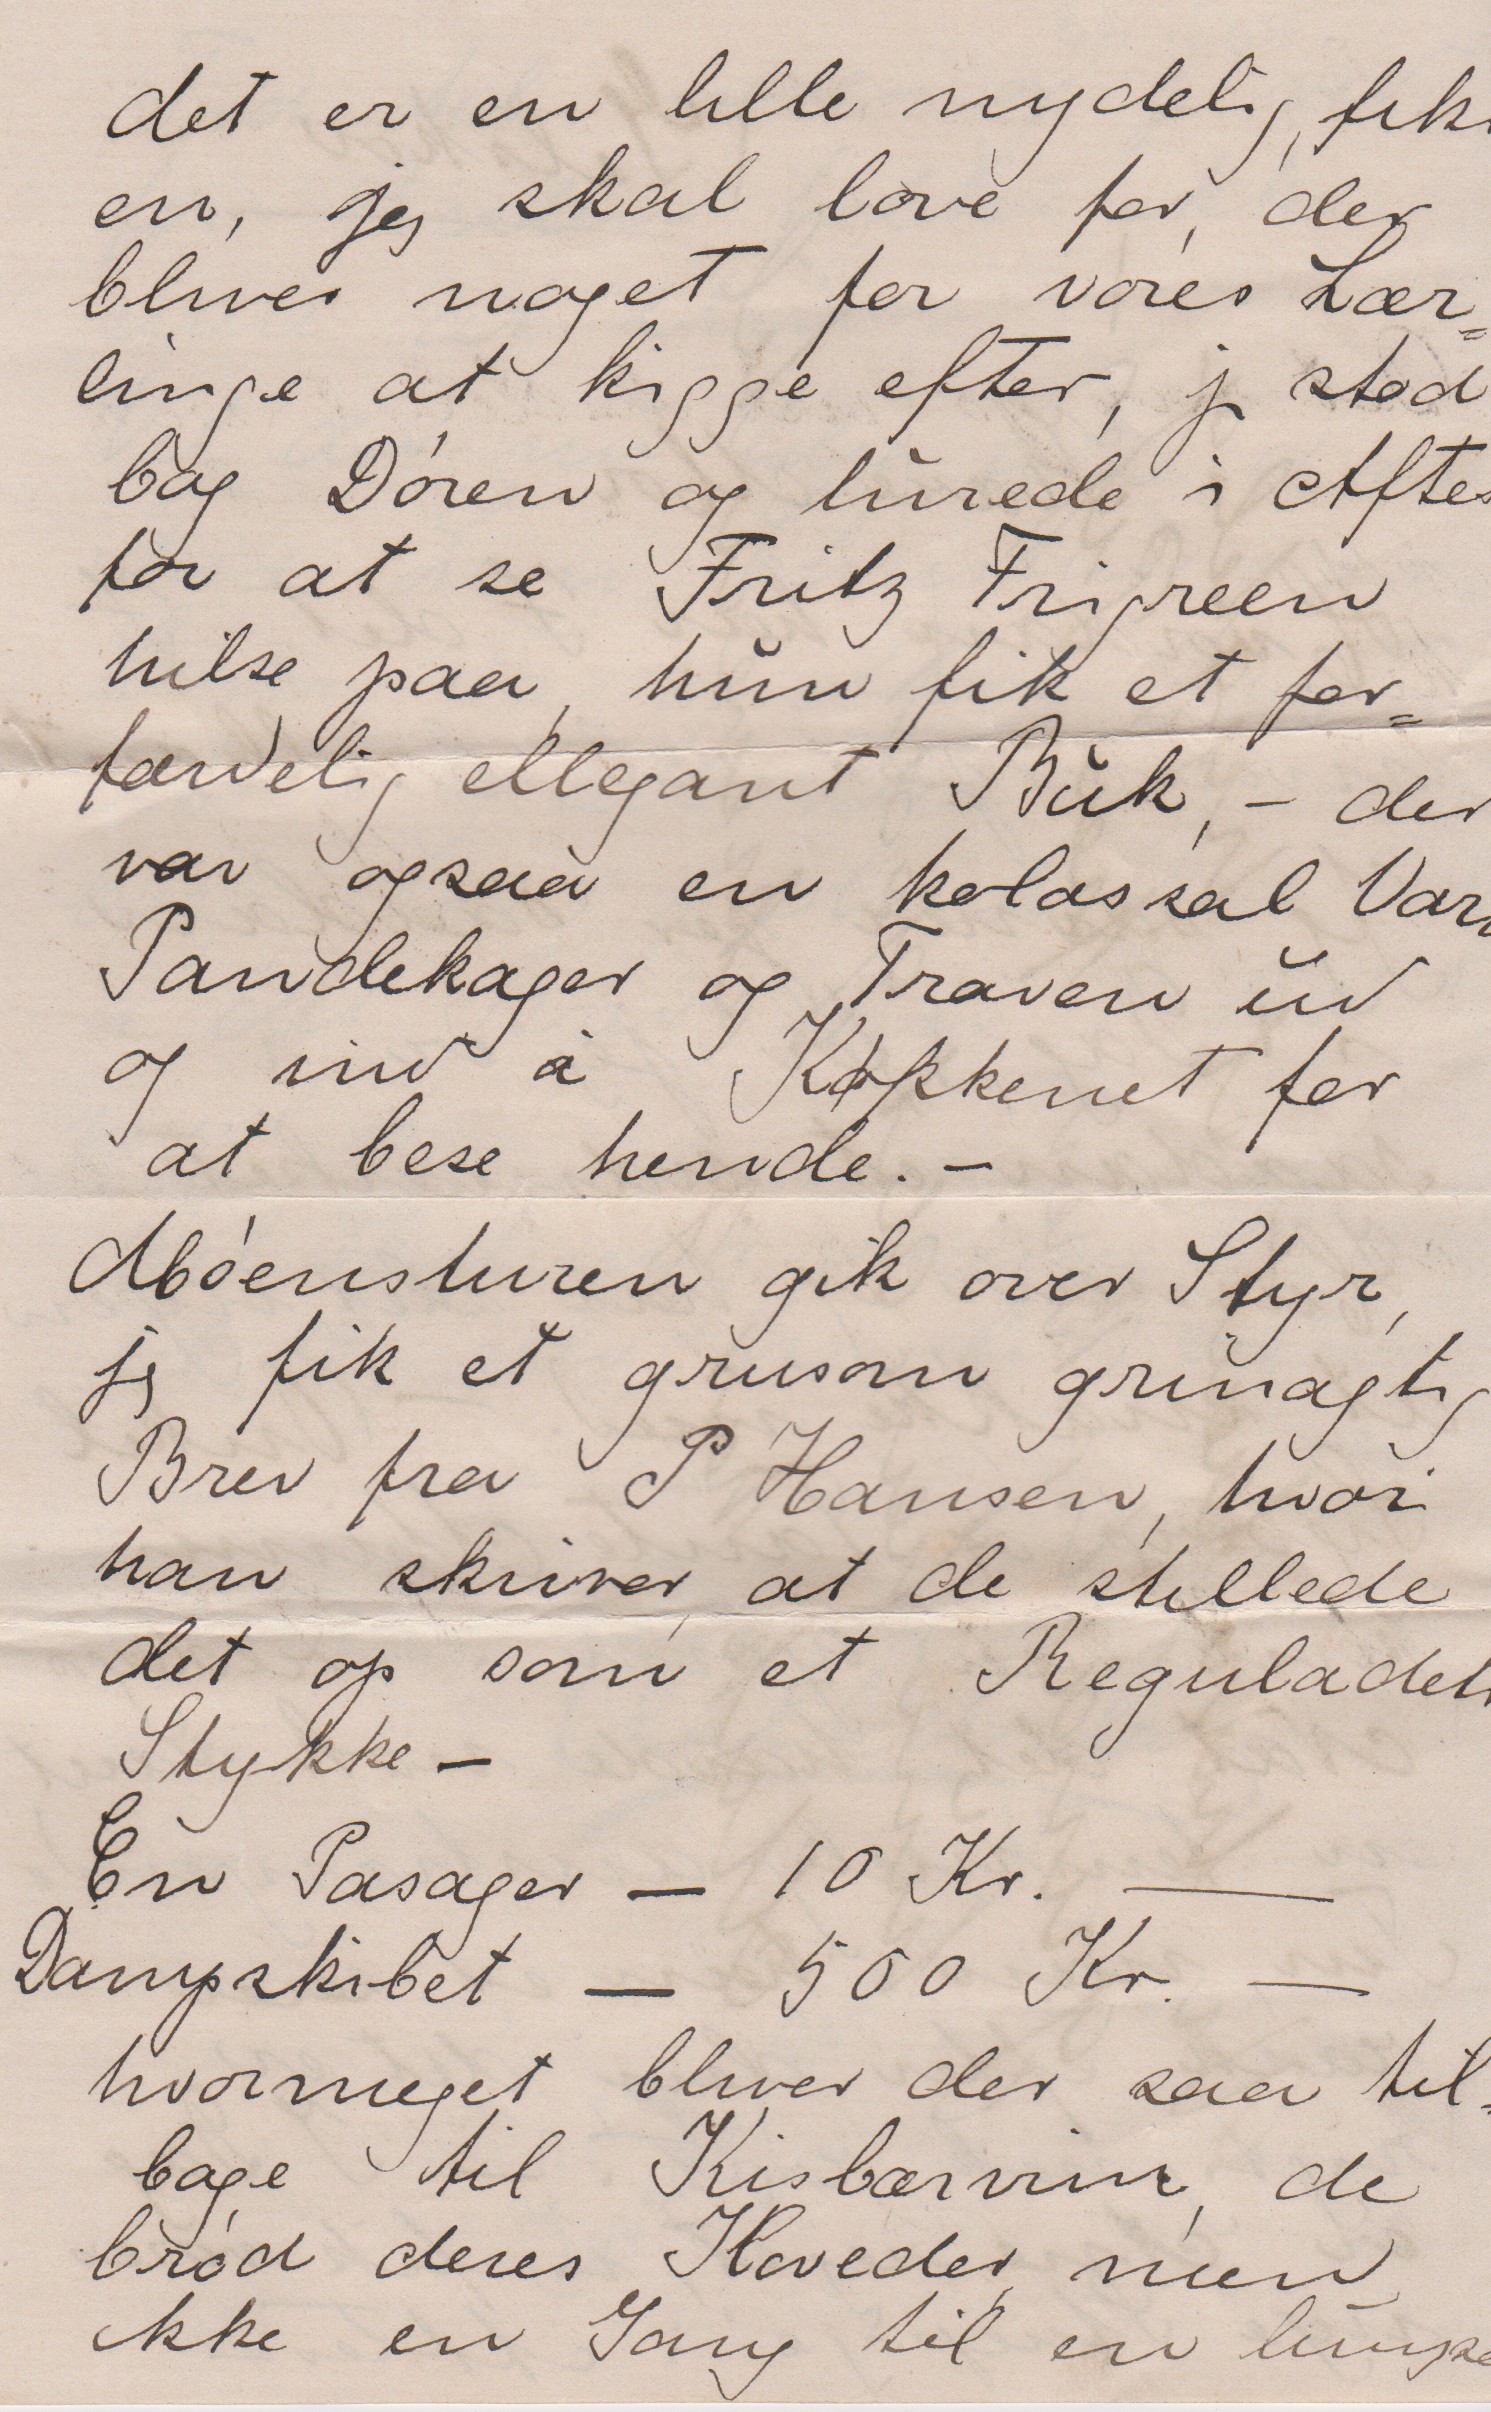 det er en lille nydelig, fiks
en, jeg skal love for, der
bliver noget for vores Lær=
linge at kigge efter, jg stod
bag Dóren og lurede i Aftes
for at se Fritz Frigreen
hilse paa, hun fik et for=
færdelig ellegant Buk, - der
var ogsaa en kolossal
Pandekager og Traven ud
og ind i Køkkenet for
at bese hende. -
Móensturen gik over Styr,
jeg fik et grusom grinagtig
Brev fra P Hansen, hvori
han skriver, at de stillede
det op som et Reguladetri
Stykke -
En Pasager — 10 Kr. —
Dampskibet — 500 Kr. —
hvormeget bliver der saa til=
bage til Kisbærvin, de
bród deres Hoveder, men
ikke en Gang til en